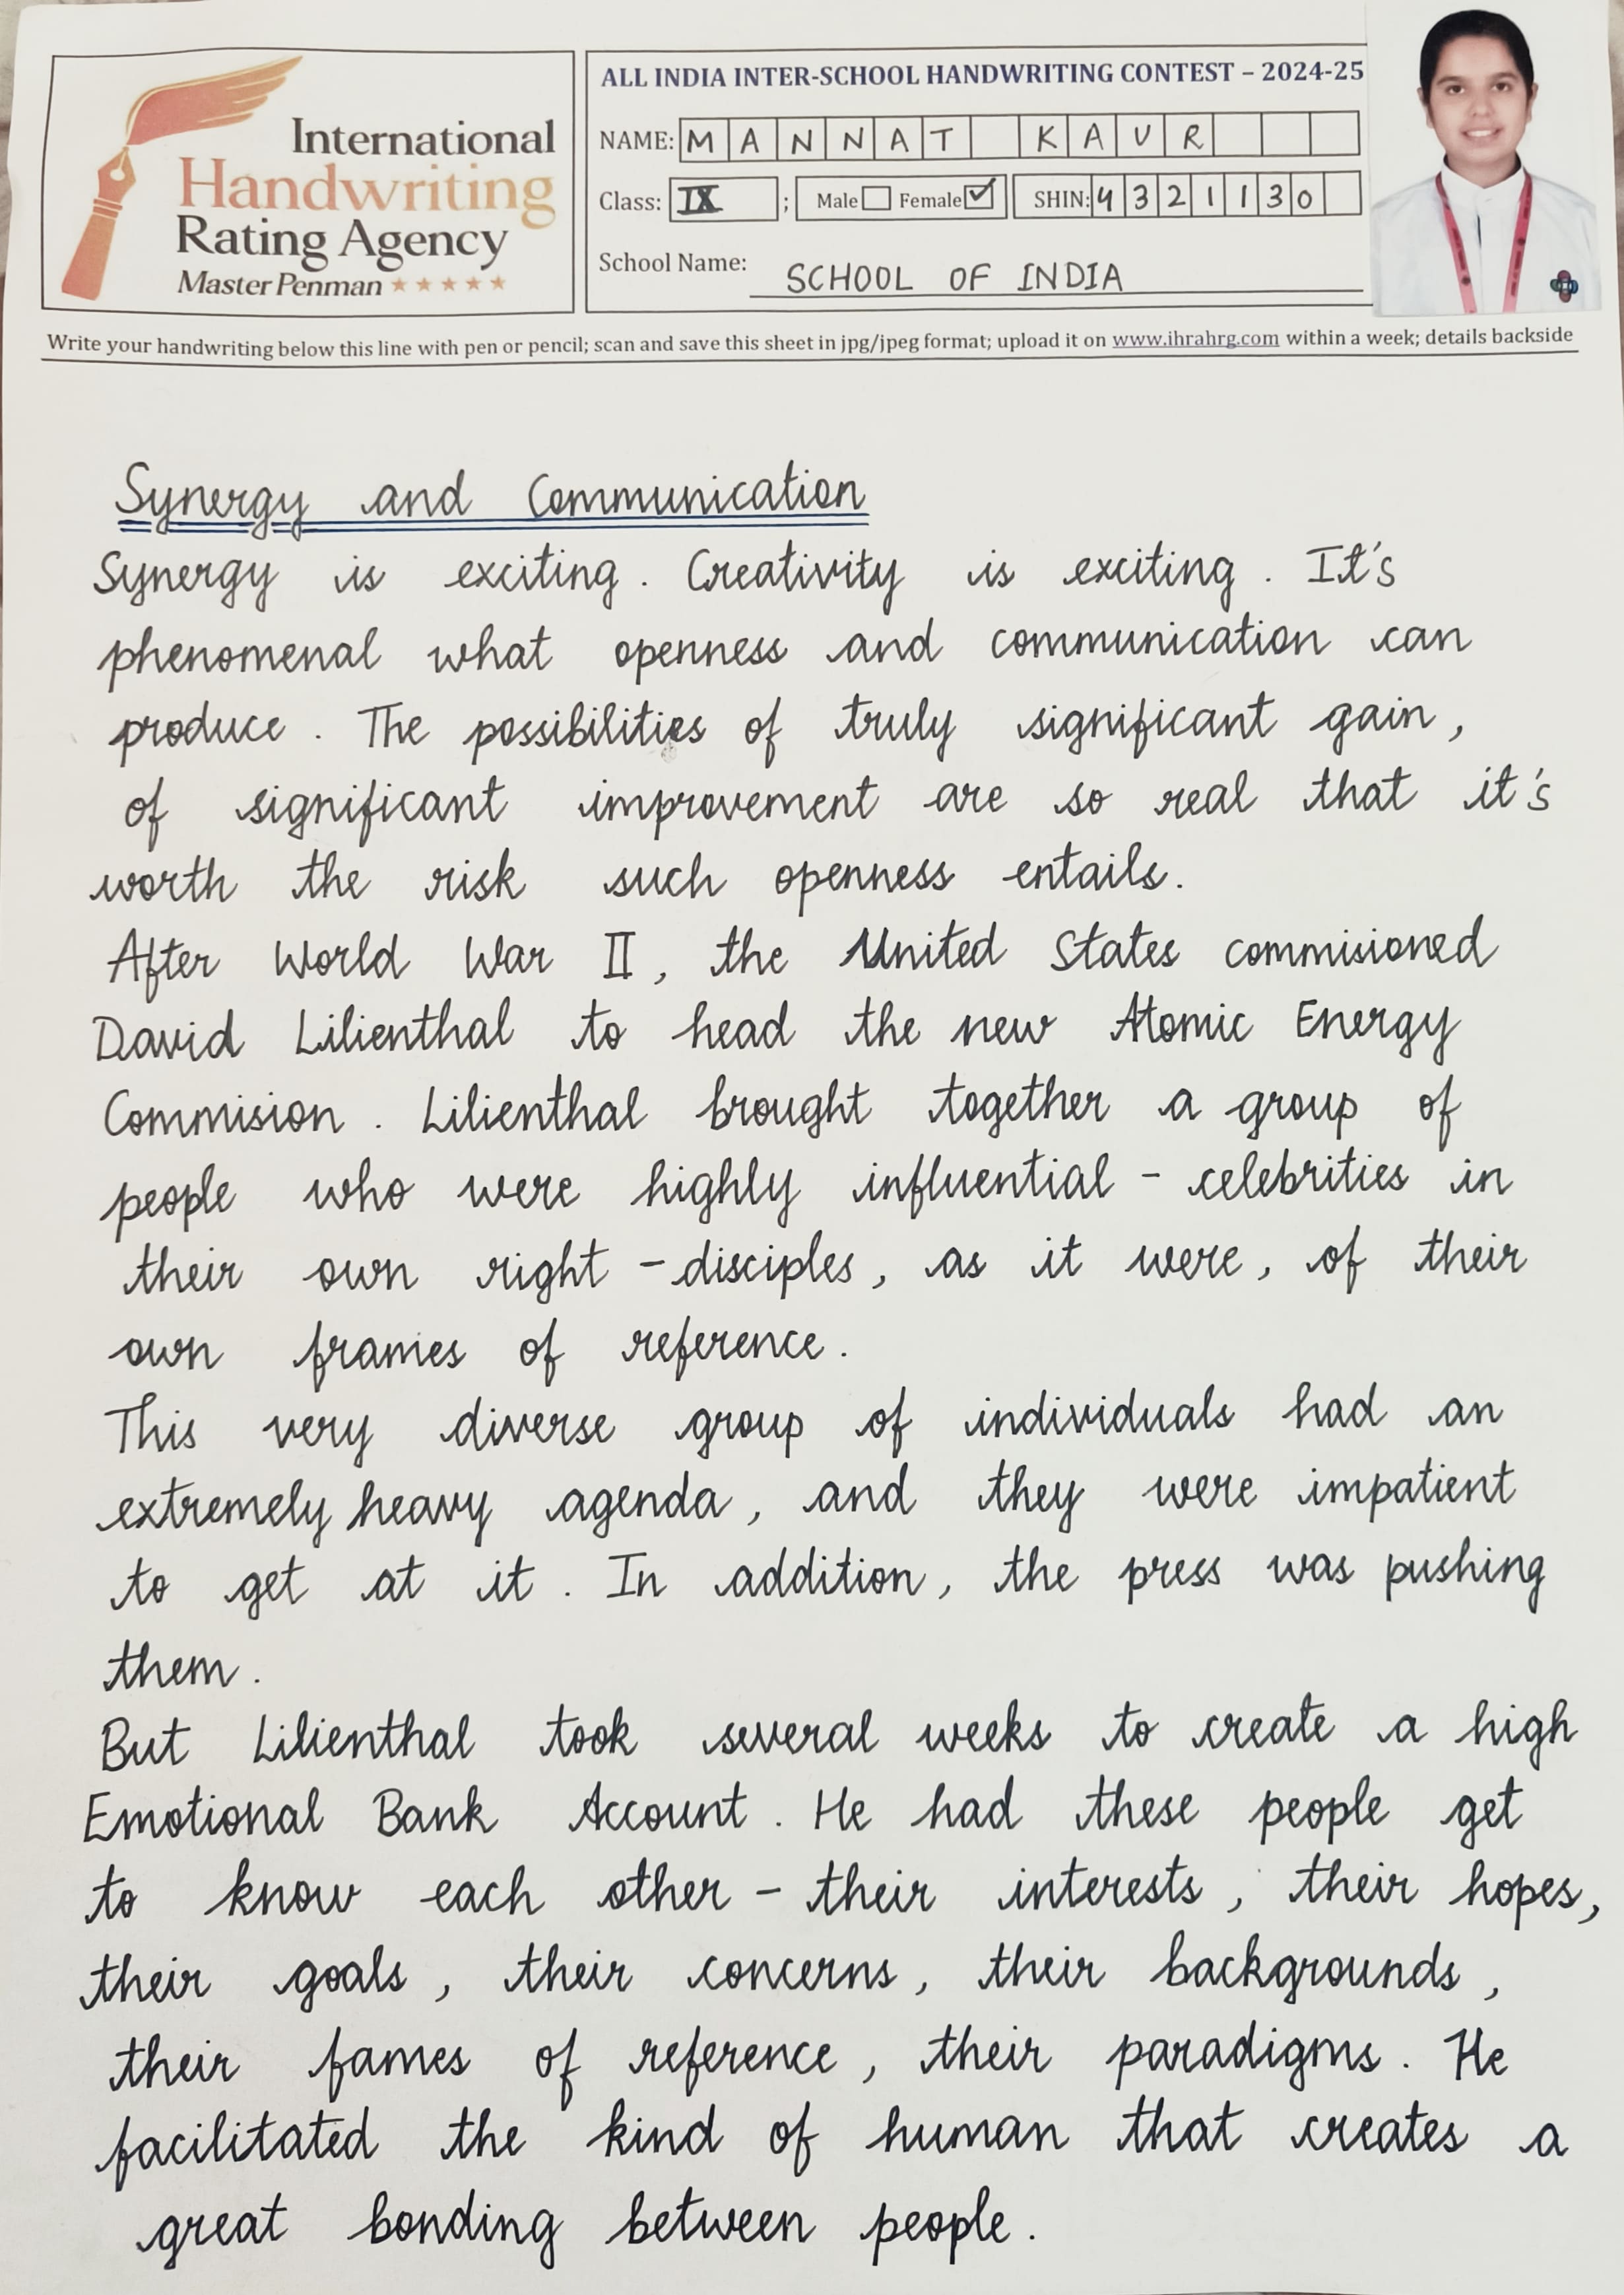 International
Handwriting
Rating Agency
Master Penman ★★★★★
ALL INDIA INTER-SCHOOL HANDWRITING CONTEST – 2024-25
NAME: MANNAT KAUR
Class: IX ; Male Female ✓ SHIN: 4321130
School Name: SCHOOL OF INDIA
Write your handwriting below this line with pen or pencil; scan and save this sheet in jpg/jpeg format; upload it on www.ihrahrg.com within a week; details backside
Synergy and Communication
Synergy is exciting. Creativity is exciting. It's
phenomenal what openness and communication can
produce. The possibilities of truly significant gain,
of significant improvement are so real that it's
worth the risk such openness entails.
After World War II, the United States commisioned
David Lilienthal to head the new Atomic Energy
Commision. Lilienthal brought together a group of
people who were highly influential - celebrities in
their own right - disciples, as it were, of their
own frames of reference.
This very diverse group of individuals had an
extremely heavy agenda, and they were impatient
to get at it. In addition, the press was pushing
them.
But Lilienthal took several weeks to create a high
Emotional Bank Account. He had these people get
to know each other - their interests, their hopes,
their goals, their concerns, their backgrounds,
their fames of reference, their paradigms. He
facilitated the kind of human that creates a
great bonding between people.